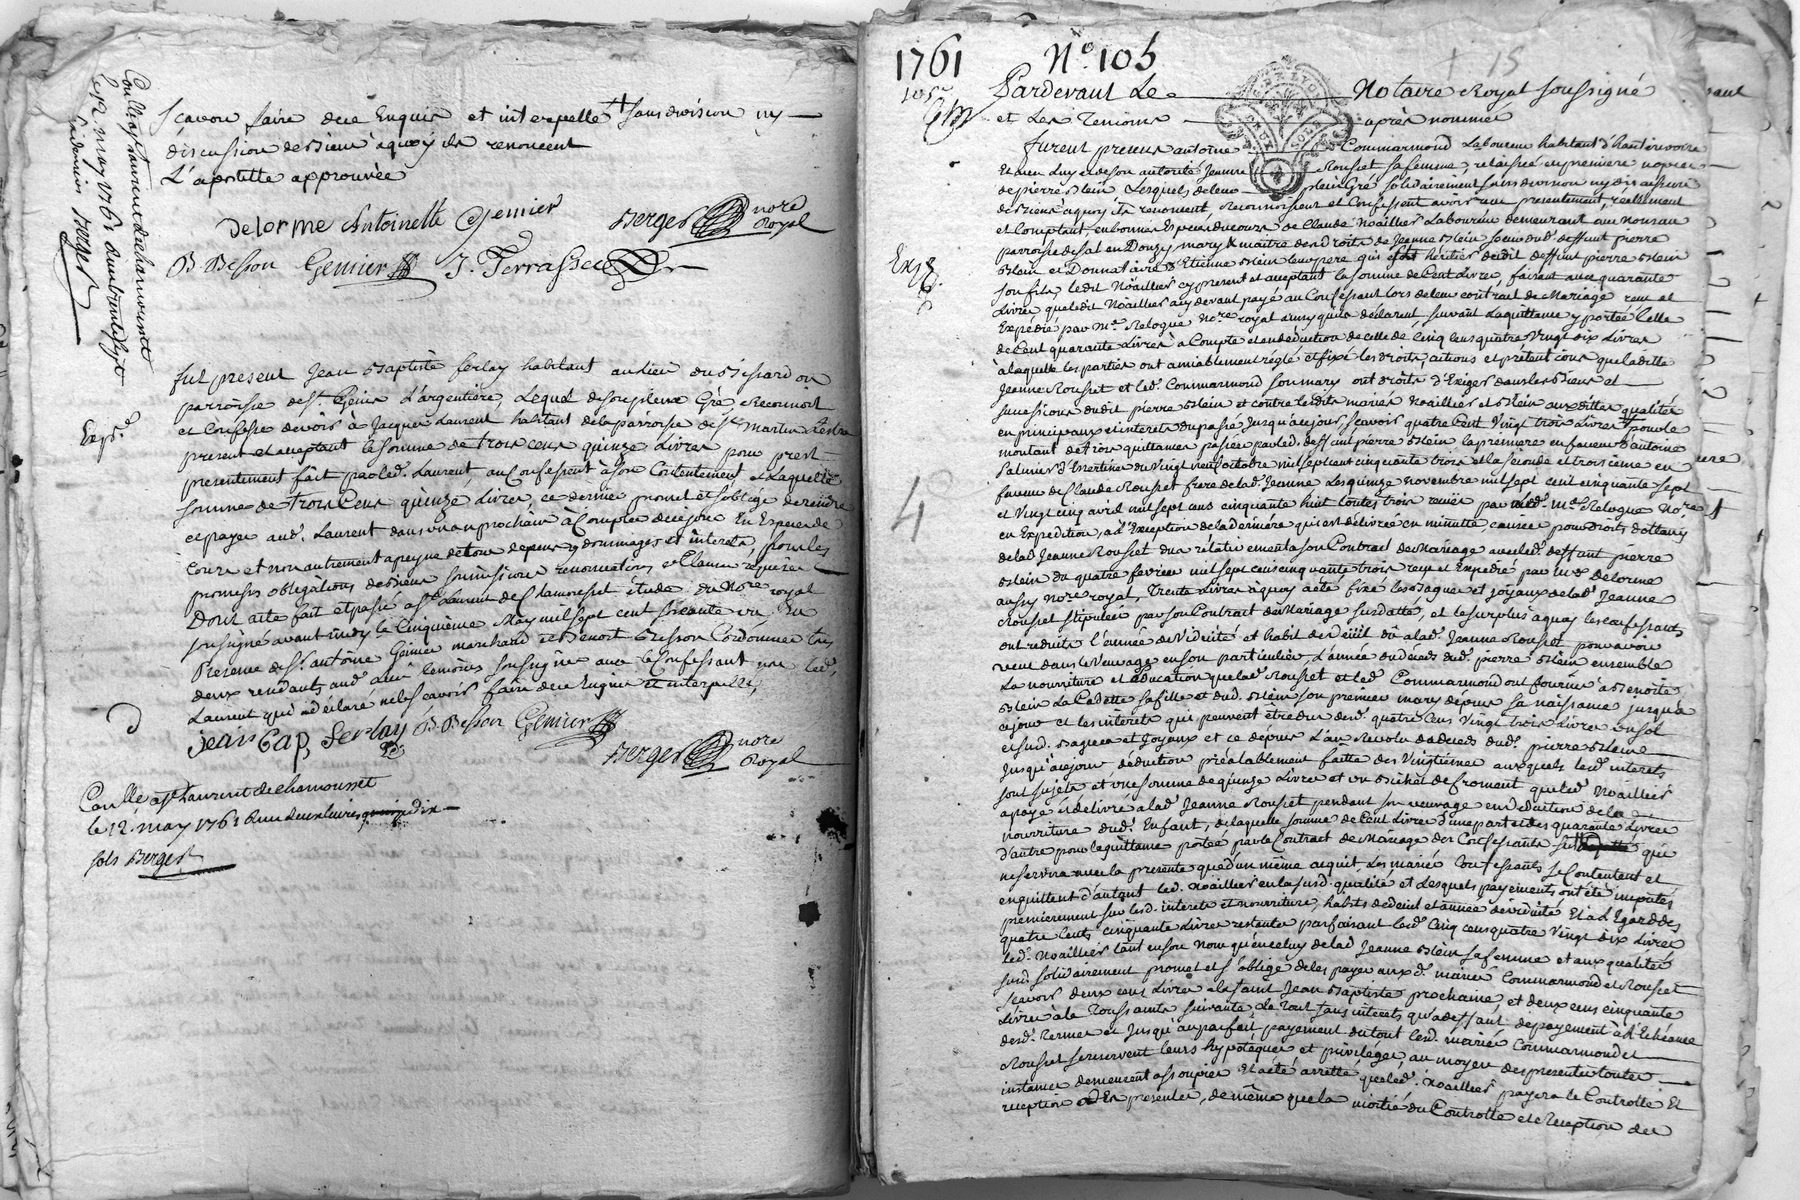 Conllé a St Laurent de chamousset
le 12 may 1761
Berger
Scavoir faire de ce Enquis et interpellé sans division ny
discussion de biens a quoy ils renoncent
L'apostille approuvée
Delorme Antoinette Gemier Berger nore Royal
B Besson Gemier J. Terrasse
fut present Jean Baptiste ferlay habitant au lieu du Bissardon
parroisse de St. Genis L'argentiere, Lequel de son plein Gré Reconnoit
et Confesse devoir à Jacques Laurent habitant de la parroisse de St Martin Lestra
present et acceptant la somme de trois cens quinze Livres pour prest
presentement fait par led. Laurent, au Confessent à son Contentement, Laquelle
somme de trois Cens quinze Livres, ce dernier promet et s'oblige de rendre
et payer aud. Laurent dans un an prochain à Compter de ce jour En Espece de
cours et non autrement a peyne de tous depens dommages et interets, pour les
promesses obligations de biens soumissions renonciations et Clauses requises
Dont acte fait et passé a St Laurent de Chamousset étude du Nore royal
soussigné avant midy le Cinquieme May mil sept cent soixante un En
Presence de Sr. antoine Gemier marchand et Benoit Besson Cordonnier les
deux residants aud. Lieu temoins soussignés avec le Confessant non led.
Laurent qui a declaré ne le scavoir faire de ce Enquis et interpellé,
Expd.
jean bap ferlay B Besson Gemier
Berger nore Royal
Conllé a St Laurent de chamousset
le 12. may 1761 Reçu deux livres dix
sols Berger
1761 No. 105
+ 15
105
Pardevant Le Notaire Royal soussigné
et Les Temoins après nommés
furent presens antoine Commarmond Laboureur habitant d'hauterivoire
Et avec Luy et de son autorité Jeanne Rousset sa femme, relaissée en premiere nopces
de pierre Blein Lesquels de leur plein Gré solidairement sans division ny discussion
de Biens a quoy ils renoncent, Reconnoissent et Confessent avoir reçu presentement, réellement
et Comptant, en bonnes Especes du cours de Claude Noaillier Laboureur demeurant au
parroisse de sal en Donzy mary & maitre des Droits de Jeanne Blein soeur dud. deffunt pierre
Blein et Donnataire d'Etienne Blein leur pere qui étoit héritier dudit deffunt pierre Blein
son fils ledit Noaillier cy present et acceptant la somme de Cent Livres, faisant avec quarante
Livres que ledit Noaillier a cy devant payé au Confessant lors de leur contrat de Mariage reçu et
Expédié par Me. Relogue Nore royal ainsy qu'ils déclarent, suivant la quittance y portée Celle
de Cent quarante Livres à Compte et en déduction de celle de Cinq cens quatre Vingt dix Livres
à laquelle les parties ont amiablement réglé et fixé les droits, actions et prétentions que ladite
Jeanne Rousset et led. Commarmond son mary ont droits d'Exiger dans les Biens et
successions dudit pierre Blein et contre lesdits mariés Noaillier et Blein auxdittes qualités
en principaux et interets du passé, jusqu'à ce jour, scavoir quatre Cent Vingt trois Livres pour le
montant de trois quittances passées par led. deffunt pierre Blein la premiere en faveur d'antoine
Palmier d'Essertines du Vingt neuf octobre mil sept cent cinquante trois et la séconde et troisieme en
faveur de Claude Rousset frere de lad. Jeanne Les quinze novembre mil sept cent cinquante sept
et Vingt cinq avril mil sept cens cinquante huit toutes trois reçües par led. Me. Relogue Nore
en Expedition, a l'Exception de la derniere qui est délivrée en minutte causées pour Droits dottaux
de lad. Jeanne Rousset du rélativement a son Contrat de Mariage avec led. deffunt pierre
Blein du quatre fevrier mil sept cens cinquante trois reçu et Expedié par Me Delorme
aussy Nore royal, trente Livres à quoy a été fixé les Bagues et joyaux de lad. Jeanne
Rousset stipulés par son Contract de Mariage susdatté, et le surplus à quoy les confessants
ont reduits l'année de Viduité et habit de Deüil dû a lad. Jeanne Rousset pour avoir
vecu dans le Veuvage en son particulier, L'année du décès dud. pierre Blein ensemble
La nourriture et éducation que lad. Rousset et led. Commarmond ont fournies à Benoite
Blein La Cadette sa fille et dud. Blein son premier mary depuis sa naissance jusqu'a
ce jour et les interets qui peuvent être dus desd. quatre Cens Vingt trois Livres
et susd. Bagues et Joyaux et ce depuis L'an Revolu du deceds dud. pierre Blein
Jusqu'aujour déduction préalablement faitte des Vingtiemes auxquels lesd. interets
sont sujets et une somme de quinze Livres et un Bichet de froment que led. Noaillier
a payé et délivré a lad. Jeanne Rousset pendant son veuvage en déduction de la
nourriture dud. Enfant, de laquelle somme de Cent Livres d'une part et des quarante Livres
d'autre pour la quittance portée par le Contract de Mariage des Confessants qui
ne servira avec la presente que d'un même acquit Les mariés Confessants se Contentent et
enquittent d'autant led. Noaillier en la susd. qualité et desquels payements ont été imputés
premierement sur lesd. interets et nourriture, habits de deuil et année de viduité Et à L'Egard des
quatre Cents cinquante Livres restantes parfaisant lesd. Cinq cens quatre Vingt dix Livres
led. Noaillier tant en son Nom qu'en celuy de lad. Jeanne Blein sa femme et aux qualités
susd. solidairement promet et s'oblige de les payer auxd. mariés Commarmond et Rousset
Scavoir deux cens Livres a la saint Jean Baptiste prochaine, et deux cens cinquante
Livres à la Toussaints suivante Le Tout sans interets qu'a deffaut de payement à L'Echéance
desd. Termes et Jusqu'au parfait payement du tout lesd. mariés Commarmond et
Rousset se reservent leurs hypotèques et privilèges, au moyen des presentes toutes
instances demeurent assoupies Et a été arretté que led. Noaillier payera le Controlle Et
reception Des presentes, de même que la moitié du Controlle et reception des
Expd.
4